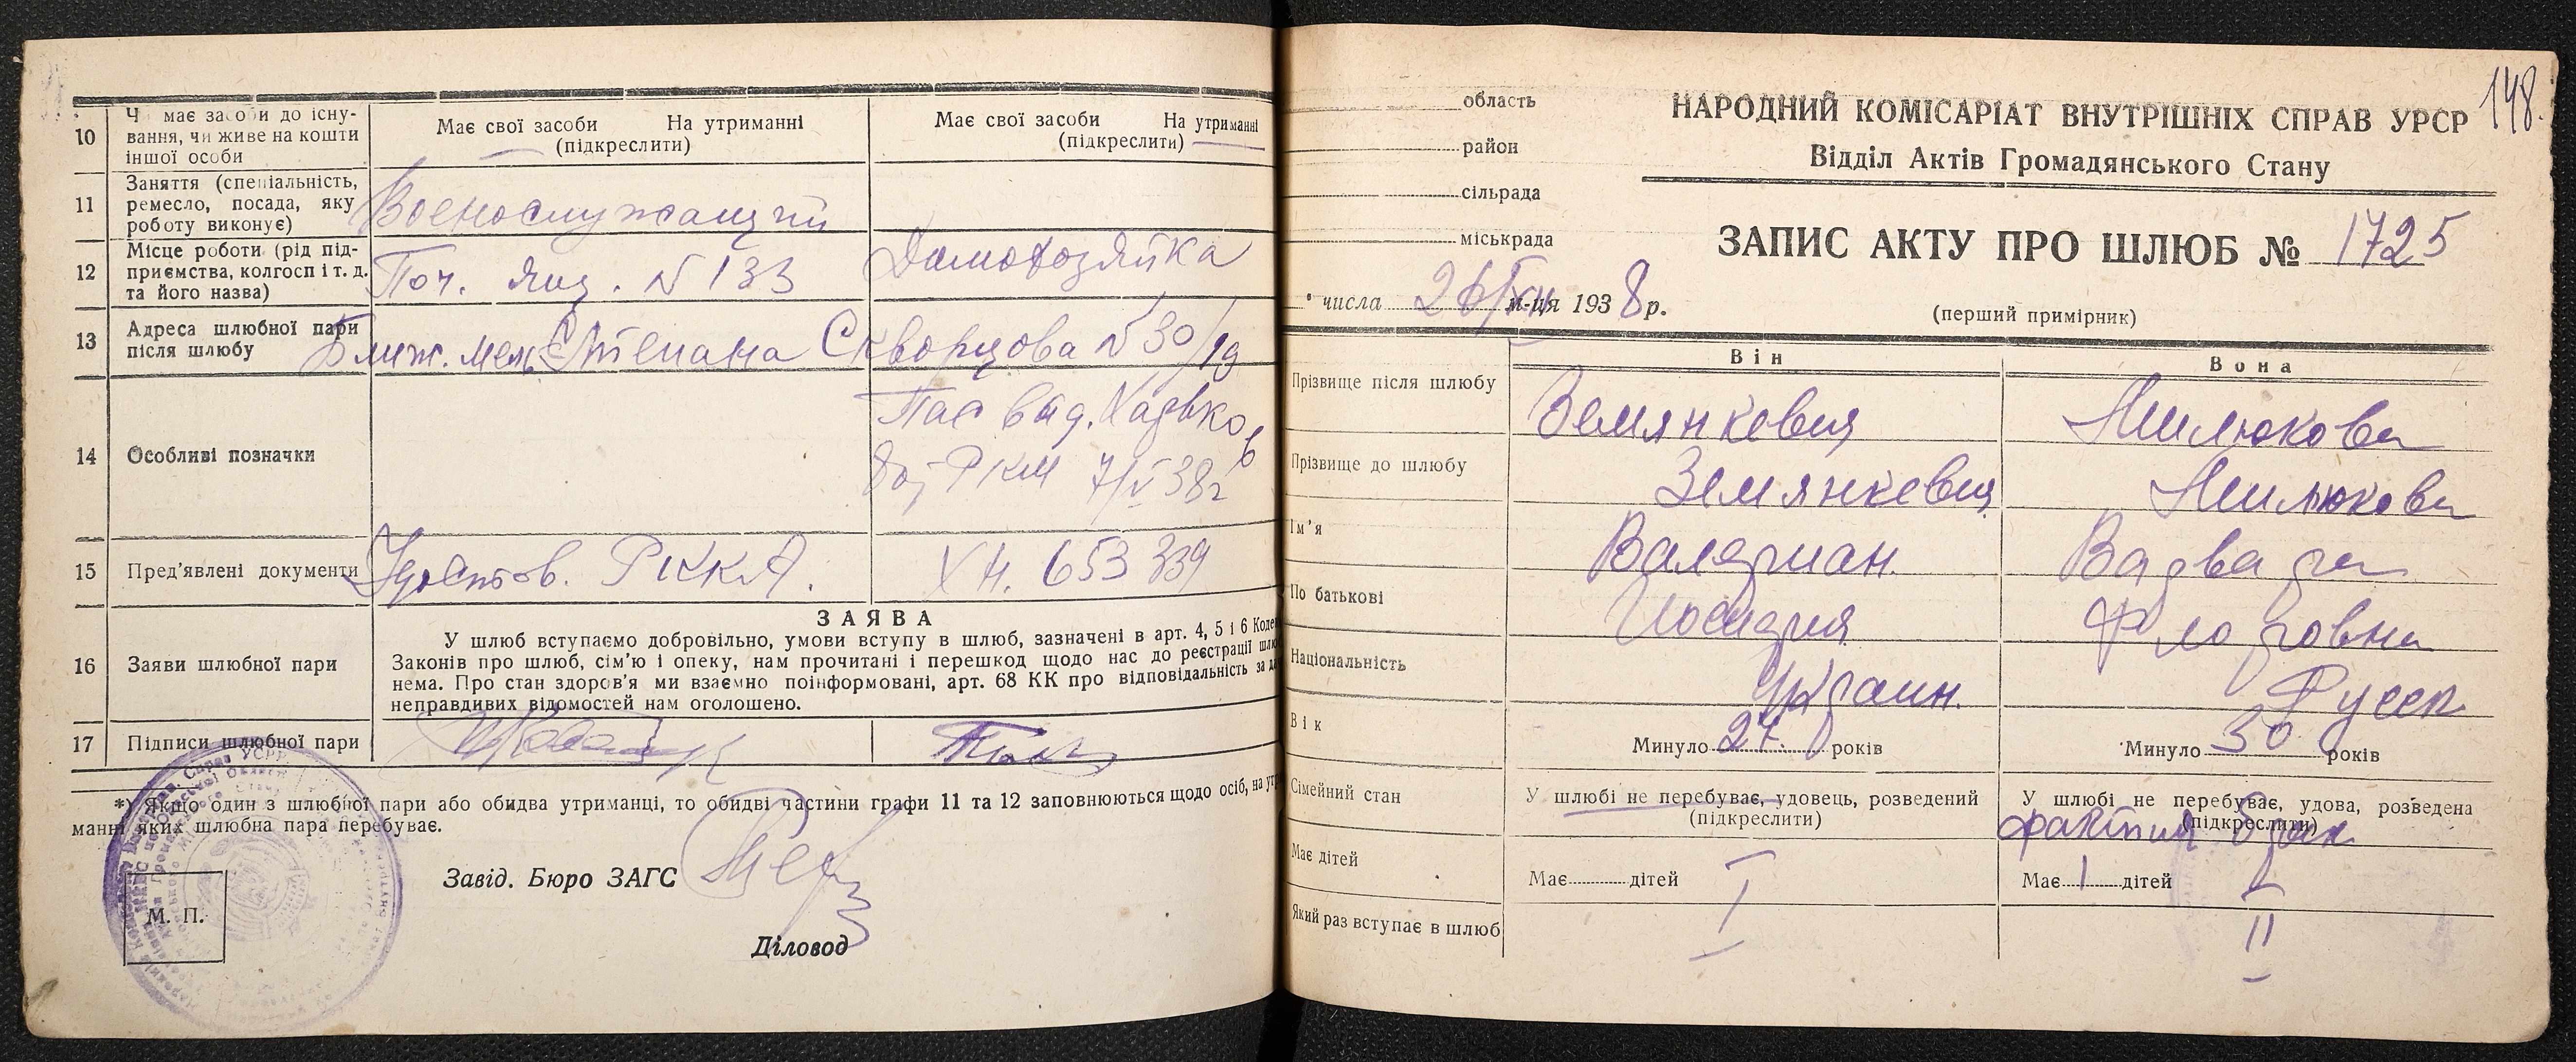 10
Чи має засоби до існу-
вання, чи живе на кошти
іншої особи
Має свої засоби На утриманні
(підкреслити)
Має свої засоби На утриманні
(підкреслити)
11
Заняття (спеціальність,
ремесло, посада, яку
роботу виконує)
Военослужащий
12
Місце роботи (рід під-
приємства, колгосп і т. д.
та його назва)
Поч. ящ. N 133
Домохозяйка
13
Адреса шлюбної пари
після шлюбу
Степана Скворцова N 30/19
14
Особливі позначки
Пас выд. Харьков
8 от РКМ 7/V 38 г
15
Пред'явлені документи
Удостов. РККА.
ХН. 653339
16
Заяви шлюбної пари
ЗАЯВА
У шлюб вступаємо добровільно, умови вступу в шлюб, зазначені в арт. 4, 5 і 6 Коде
Законів про шлюб, сім'ю і опеку, нам прочитані і перешкод щодо нас до реєстрації шлю
нема. Про стан здоров'я ми взаємно поінформовані, арт. 68 КК про відповідальність за да
неправдивих відомостей нам оголошено.
17
Підписи шлюбної пари
*) Якщо один з шлюбної пари або обидва утриманці, то обидві частини графи 11 та 12 заповнюються щодо осіб, на утри
манні яких шлюбна пара перебуває.
Завід. Бюро ЗАГС
М. П.
Діловод
148.
область
район
сільрада
міськрада
НАРОДНИЙ КОМІСАРІАТ ВНУТРІШНІХ СПРАВ УРСР
Відділ Актів Громадянського Стану
ЗАПИС АКТУ ПРО ШЛЮБ № 1725
числа 26/XII м-ця 1938 р.
(перший примірник)
Він
Вона
Прізвище після шлюбу
Земянкевич
Милюкова
Прізвище до шлюбу
Земянкевич
Милюкова
Ім'я
Валериан.
Варвара
По батькові
Флоровна
Національність
Украин.
Русск
Вік
Минуло 27. років
Минуло 30 років
Сімейний стан
У шлюбі не перебуває, удовець, розведений
(підкреслити)
У шлюбі не перебуває, удова, розведена
(підкреслити)
брак
Має дітей
Має дітей
Має 1 дітей
Який раз вступає в шлюб
I
II